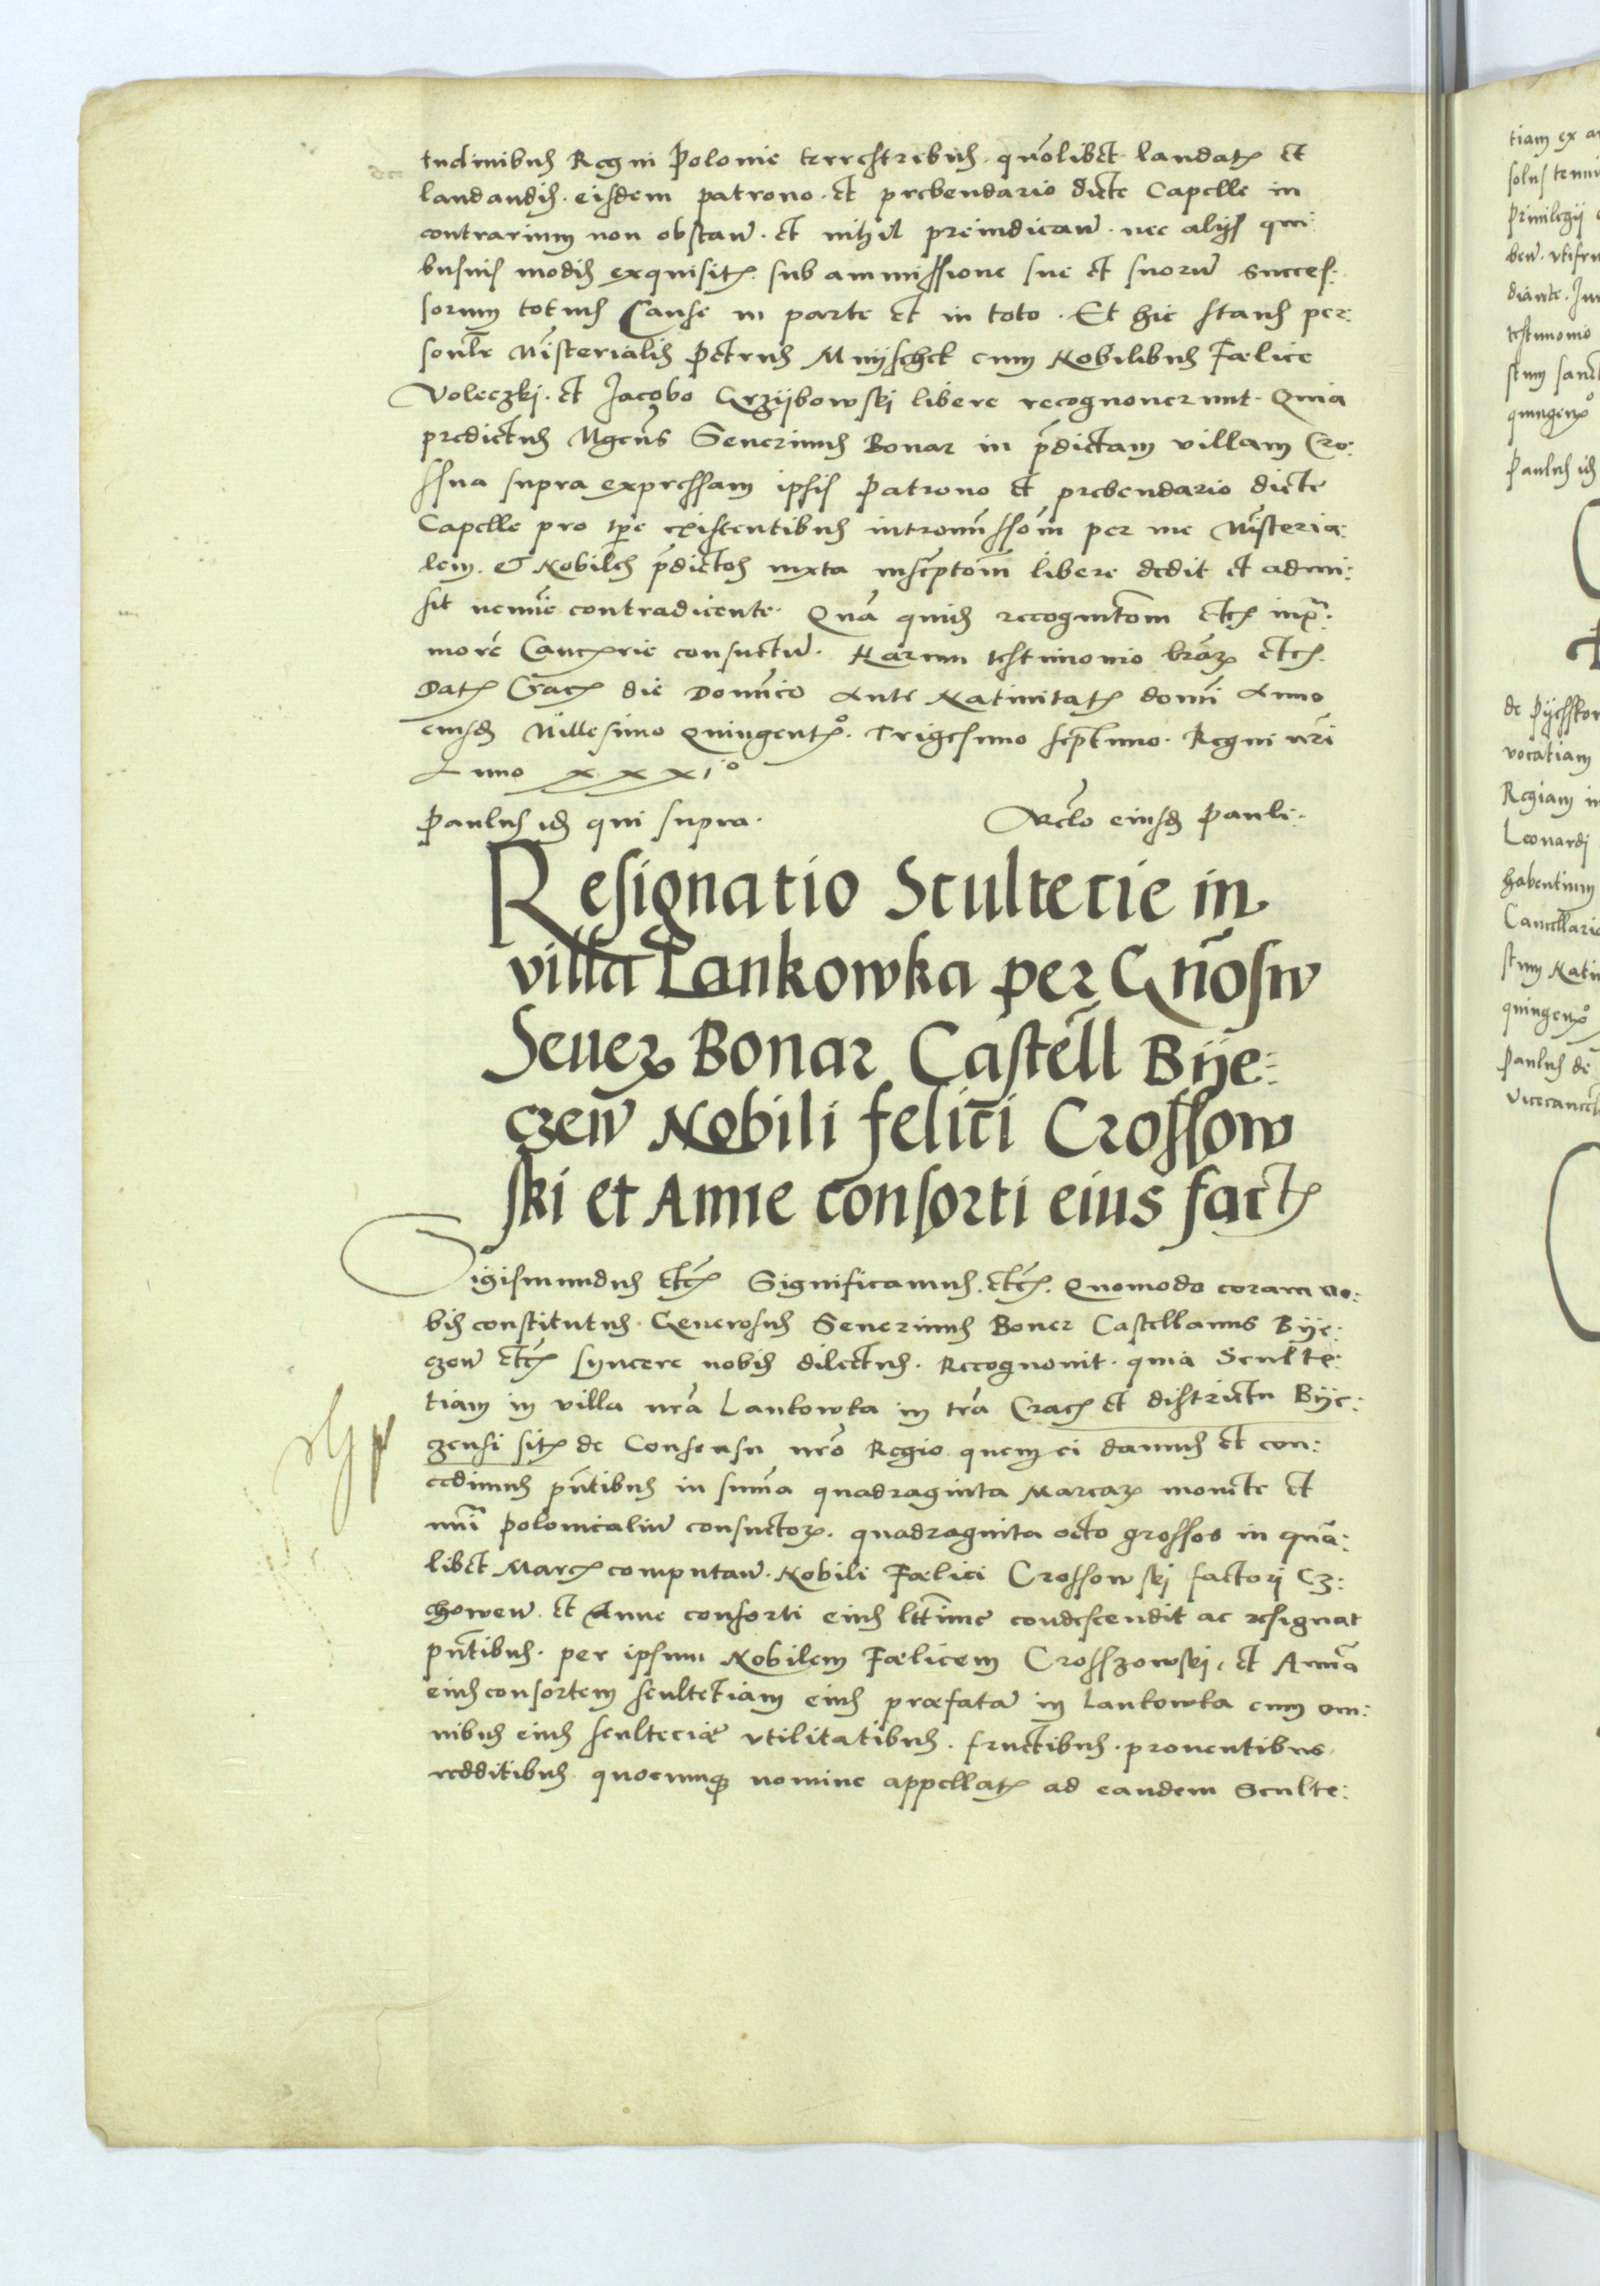 tudinibus Regni Polonie terrestribus. quōlibet laudatꝭ et
laudandis. eisdem patrono. et prebendario dicte Capelle in
contrarium non obstañ. et nihil preiudicañ. nec alijs qui:
busuis modis exquisitꝭ. sub ammissione sue et suorū succes:
sorum totius Cause in parte et in toto. Et hic stans per:
sonlr̄ Misterialis Petrus Mnijschek cum Nobilibus Fælice
Voleczkj. et Jacobo Grzijbowskj libere recognouerunt. Quia
predictus Mgcūs Seuerinus Bonar in p̄dictam villam Cro:
ssna supra expressam ipsis Patrono et prebendario dicte
Capelle pro tpe existentibus intromissōm per me Misteria:
lem. et Nobiles p̄dictos iuxta inscptōm libere dedit et admi:
sit nemīe contradicente. Quā quid recognitom etcꝭ inpꝛ̄.
more Cancꝭrie consuetū. Harum testimonio lr̄aꝝ etcꝭ.
Datꝭ Cracꝭ die Dominico Ante Natiuitatꝭ domī Anno
eiusd Millesimo Quingentꝭº. Trigesimo septimo. Regni nr̄i
Anno xxxiº
Paulus id qui supra.
Relo eiusd Pauli.
Resignatio Scultecie in
villa Lankowka per Gñosū
Seueꝝ Bonar Castell̄ Bije:
czeñ Nobili felici Crossow
ski et Anne consorti eius factꝭ
Sigismundus etcꝭ Significamus. etcꝭ. Quomodo coram no:
bis constitutus. Generosus Seuerinus Boner Castellanus Bije:
czeñ etcꝭ syncere nobis dilectus. Recognouit. quia Sculte:
tiam in villa nr̄a Lankowka in tr̄a Cracꝭ et districtu Bije:
zensi sitꝭ de Consensu nr̄o Regio quem ei damus et con:
cedimus pn̄tibus in sum̄a quadraginta Marcaꝝ monete et
nūi polonicaliū consuetoꝝ. quadraginta octo grossos in quā:
libet Marcꝭ computañ. Nobili Fælici Crossowskj factorj Cz:
choweñ. et Anne consorti eius lttīme condescendit ac resignat
pn̄tibus. per ipsum Nobilem Fælicem Crosszowskj. et Annā
eius consortem scultetiam eius præfatā in Lankowka cum om:
nibus eius scultetiæ vtilitatibus. fructibus. prouentibus.
redditibus. quocunqꝫ nomine appellatꝭ ad eandem Sculte: